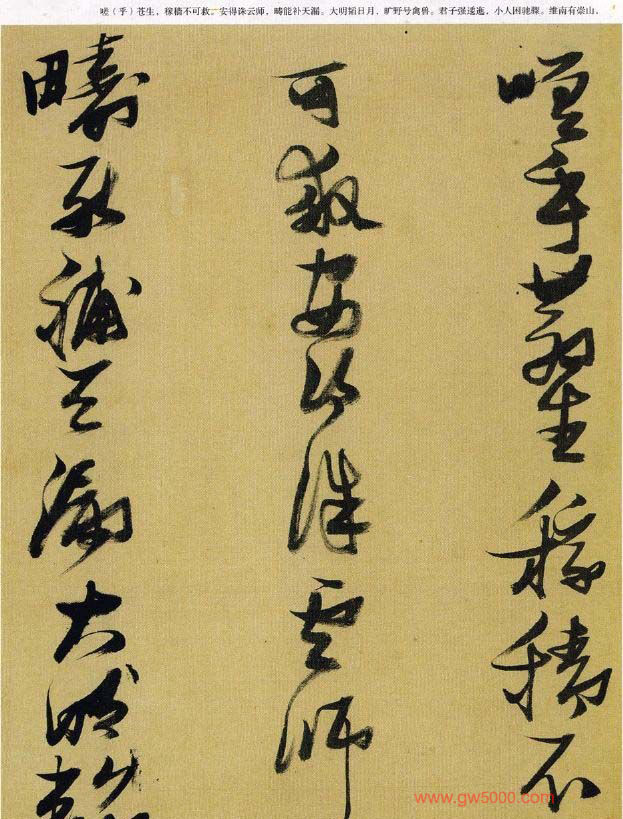 嗟（乎）苍生，稼穑不可救。安得诛云师，畴能补天漏。大明韬日月，旷野号禽兽。君子强逶迤，小人困驰骤。维南有崇山，
嗟乎蒼生稼穡不
可救安得誅雲師
疇能補天漏大明韜
www.gw5000.com